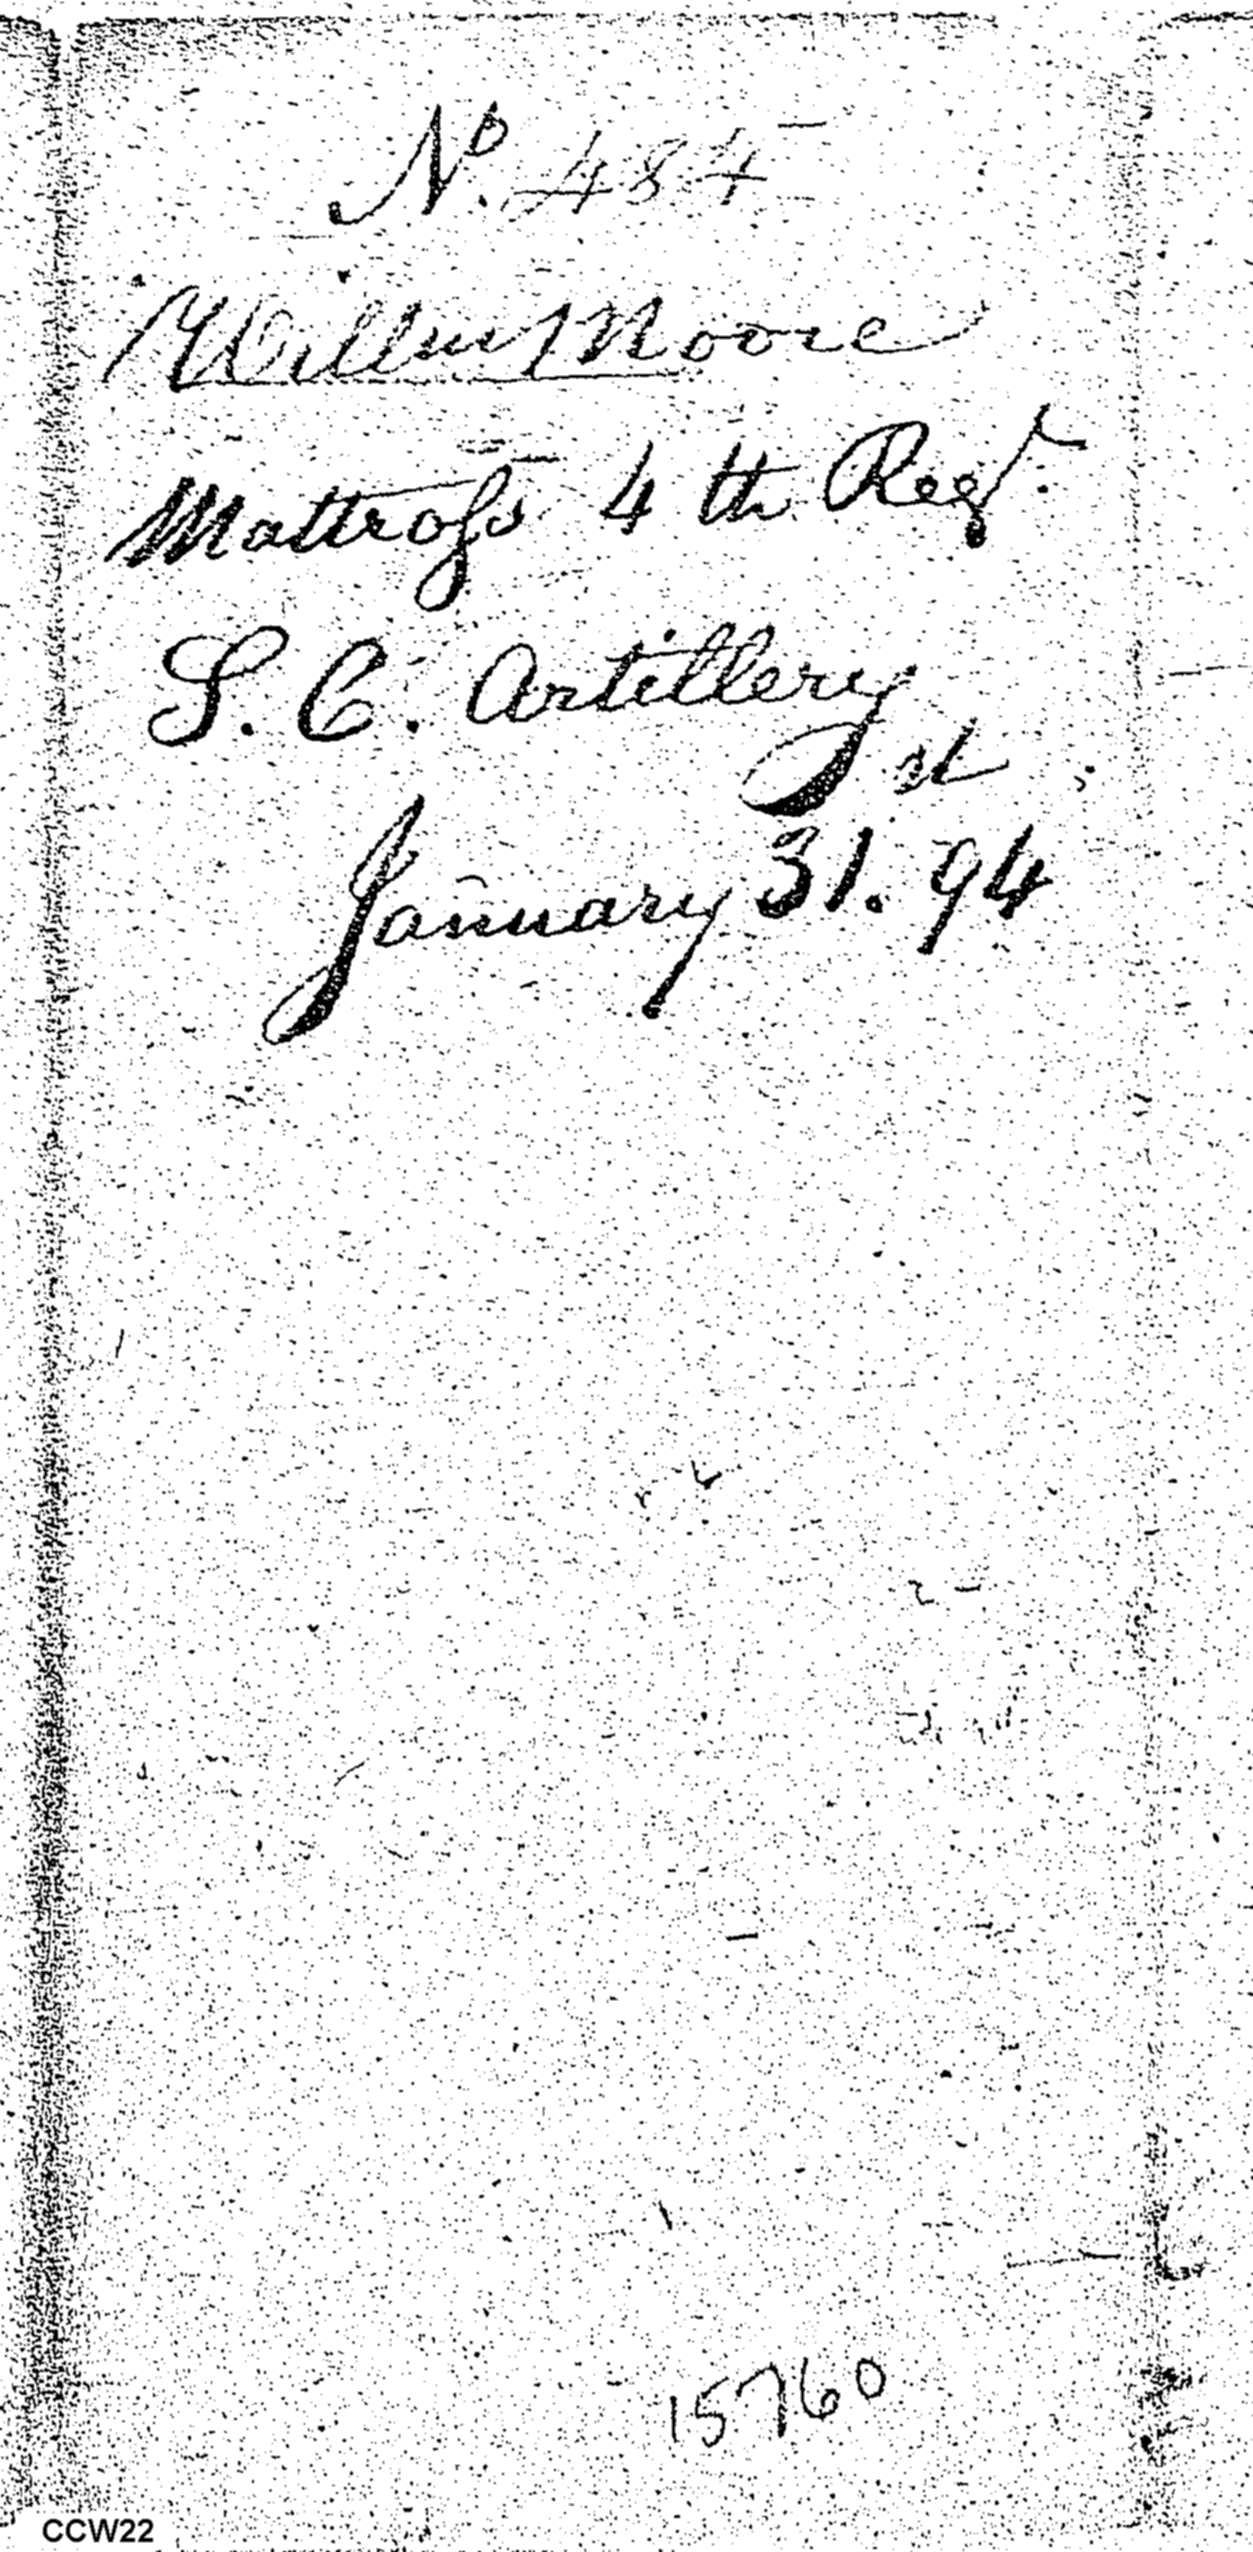 No. 484
Willm Moore
Mattross 4th Regt.
S. C. Artillery
January 31.st 94
15760
CCW22